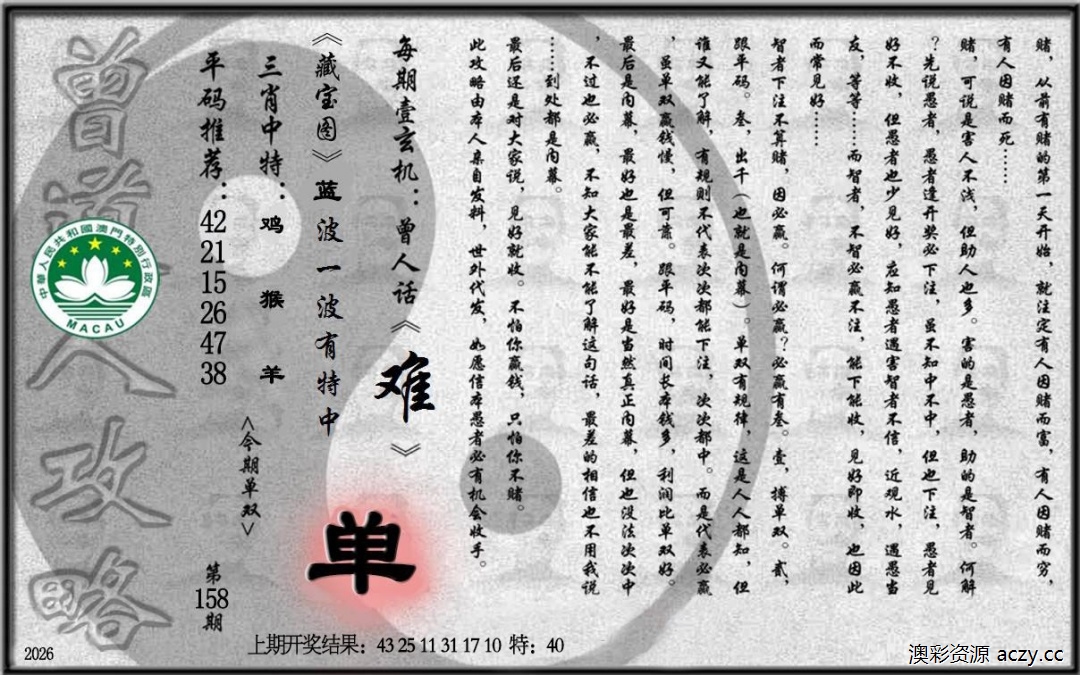 赌，从前有赌的第一天开始，就注定有人因赌而富，有人因赌而穷，
有人因赌而死……
赌，可说是害人不浅，但助人也多。害的是愚者，助的是智者。何解
？先说愚者，愚者逢开奖必下注，虽不知中不中，但也下注，愚者见
好不收，但愚者也少见好，应知愚者遇害智者不信，近观水，遇愚当
友，等等……而智者，不智必赢不注，能下能收，见好即收，也因此
而常见好……
智者下注不算赌，因必赢。何谓必赢？必赢有叁。壹，搏单双。贰，
跟单码。叁，出千（也就是内幕）。单双有规律，这是人人都知，但
谁又能了解，有规则不代表次次都能下注，次次都中。而是代表必赢
，虽单双赢钱慢，但可靠。跟单码，时间长本钱多，利润比单双好。
最后是内幕，最好也是最差，最好是当然真正内幕，但也没法次次中
，不过也必赢，不知大家能不能了解这句话，最差的相信也不用我说
……到处都是内幕。
最后还是对大家说，见好就收。不怕你赢钱，只怕你不赌。
此攻略由本人亲自发料，世外代发，如愿信本愚者必有机会收手。
每期壹玄机：曾人话《难》
《藏宝图》蓝波一波有特中
单
三肖中特：鸡 猴 羊
<今期单双>
平码推荐：42 21 15 26 47 38
第158期
曾道人攻略
中華人民共和國澳門特別行政區
MACAU
上期开奖结果：43 25 11 31 17 10 特：40
2026
澳彩资源 aczy.cc